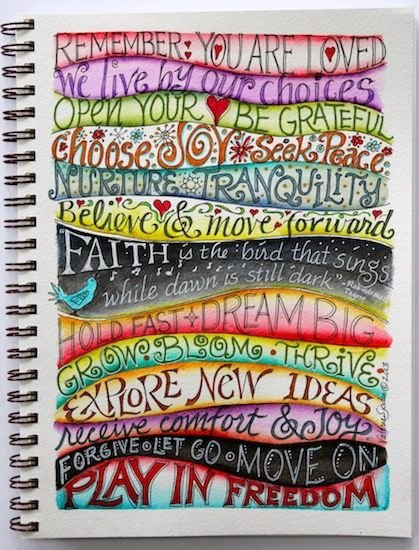 REMEMBER: YOU ARE LOVED
we live by our choices
OPEN YOUR ♥ BE GRATEFUL
choose JOY seek Peace
NURTURE TRANQUILITY
Believe & move forward
"FAITH is the bird that sings
while dawn is still dark."
HOLD FAST DREAM BIG
GROW • BLOOM • THRIVE
EXPLORE NEW IDEAS
receive comfort & JOY
FORGIVE • LET GO • MOVE ON
PLAY IN FREEDOM